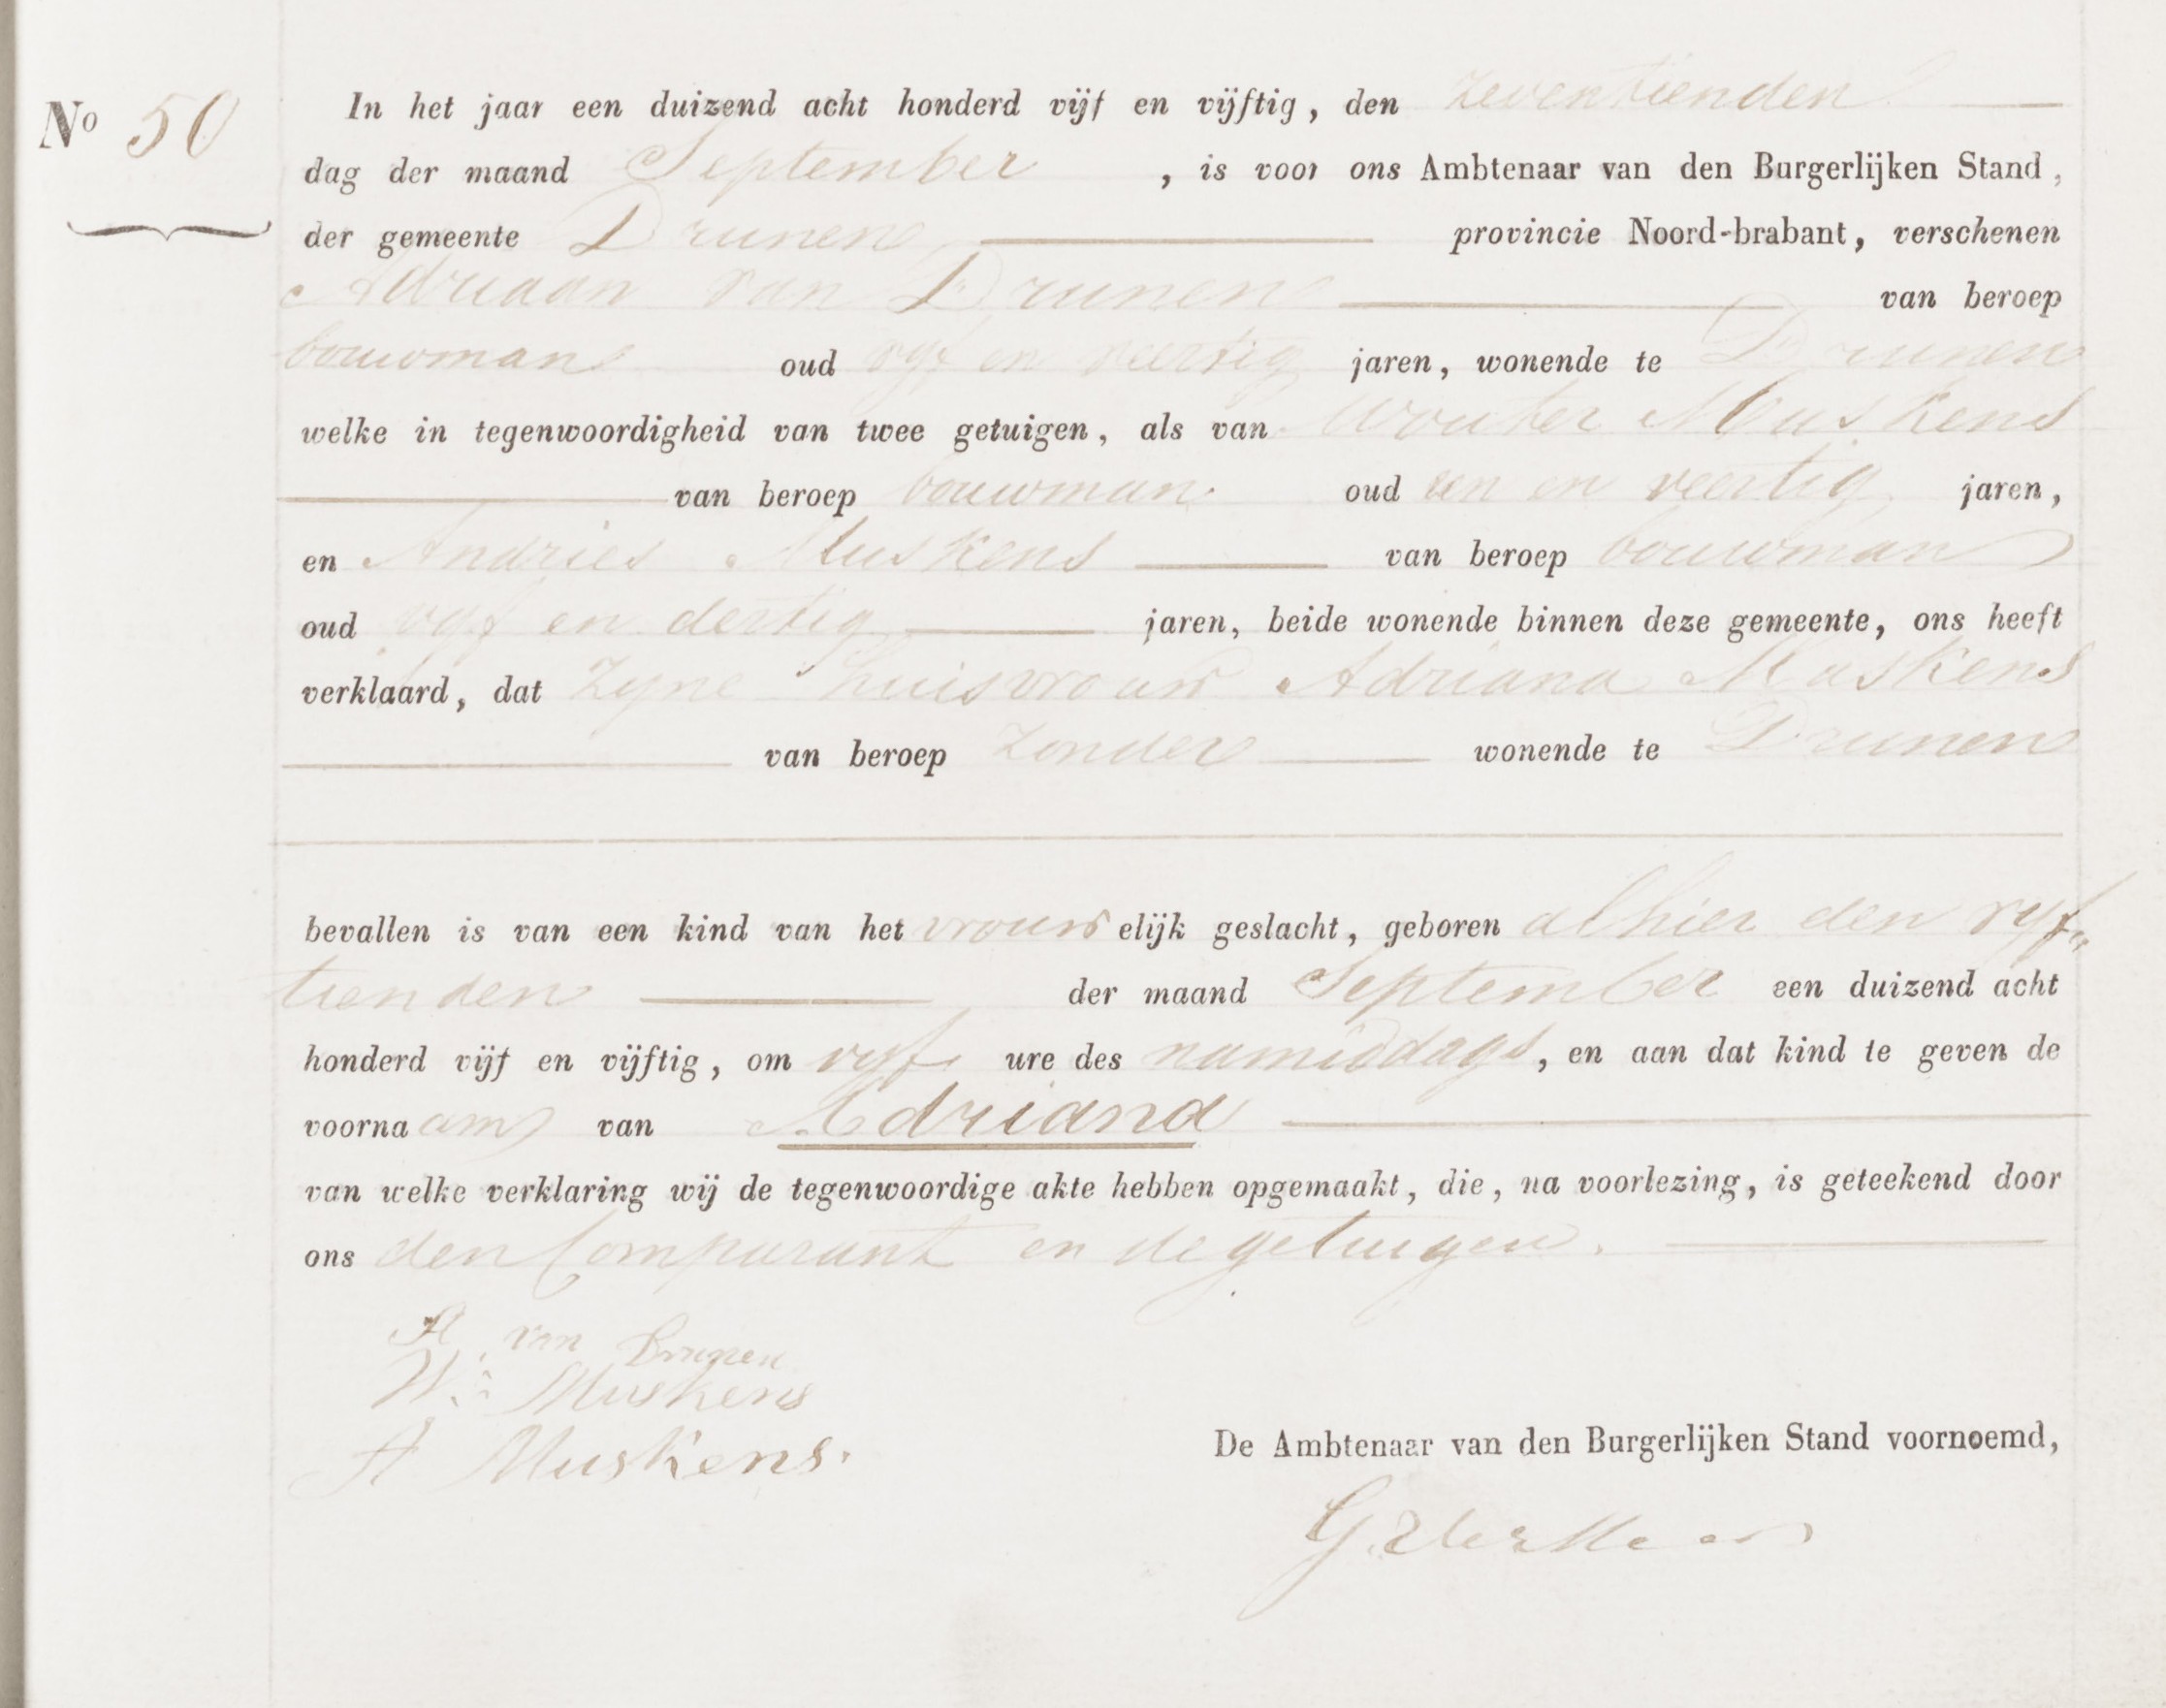 Nº 50
In het jaar een duizend acht honderd vijf en vijftig, den zeventienden
dag der maand September, is voor ons Ambtenaar van den Burgerlijken Stand,
der gemeente Drunen provincie Noord-brabant, verschenen
Adriaan van Drunen van beroep
bouwman oud vyf en veertig jaren, wonende te Drunen
welke in tegenwoordigheid van twee getuigen, als van Wouter Muskens
van beroep bouwman oud een en veertig jaren,
en Andries Muskens van beroep bouwman
oud vyf en dertig jaren, beide wonende binnen deze gemeente, ons heeft
verklaard, dat zyne huisvrouw Adriana Muskens
van beroep zonder wonende te Drunen
bevallen is van een kind van het vrouwelijk geslacht, geboren alhier den vyf„
tienden der maand September een duizend acht
honderd vijf en vijftig, om vyf ure des namiddags, en aan dat kind te geven de
voornaam van Adriana
van welke verklaring wij de tegenwoordige akte hebben opgemaakt, die, na voorlezing, is geteekend door
ons den Comparant en de getuigen.
A van Drunen
W: Muskens
A Muskens.
De Ambtenaar van den Burgerlijken Stand voornoemd,
G.